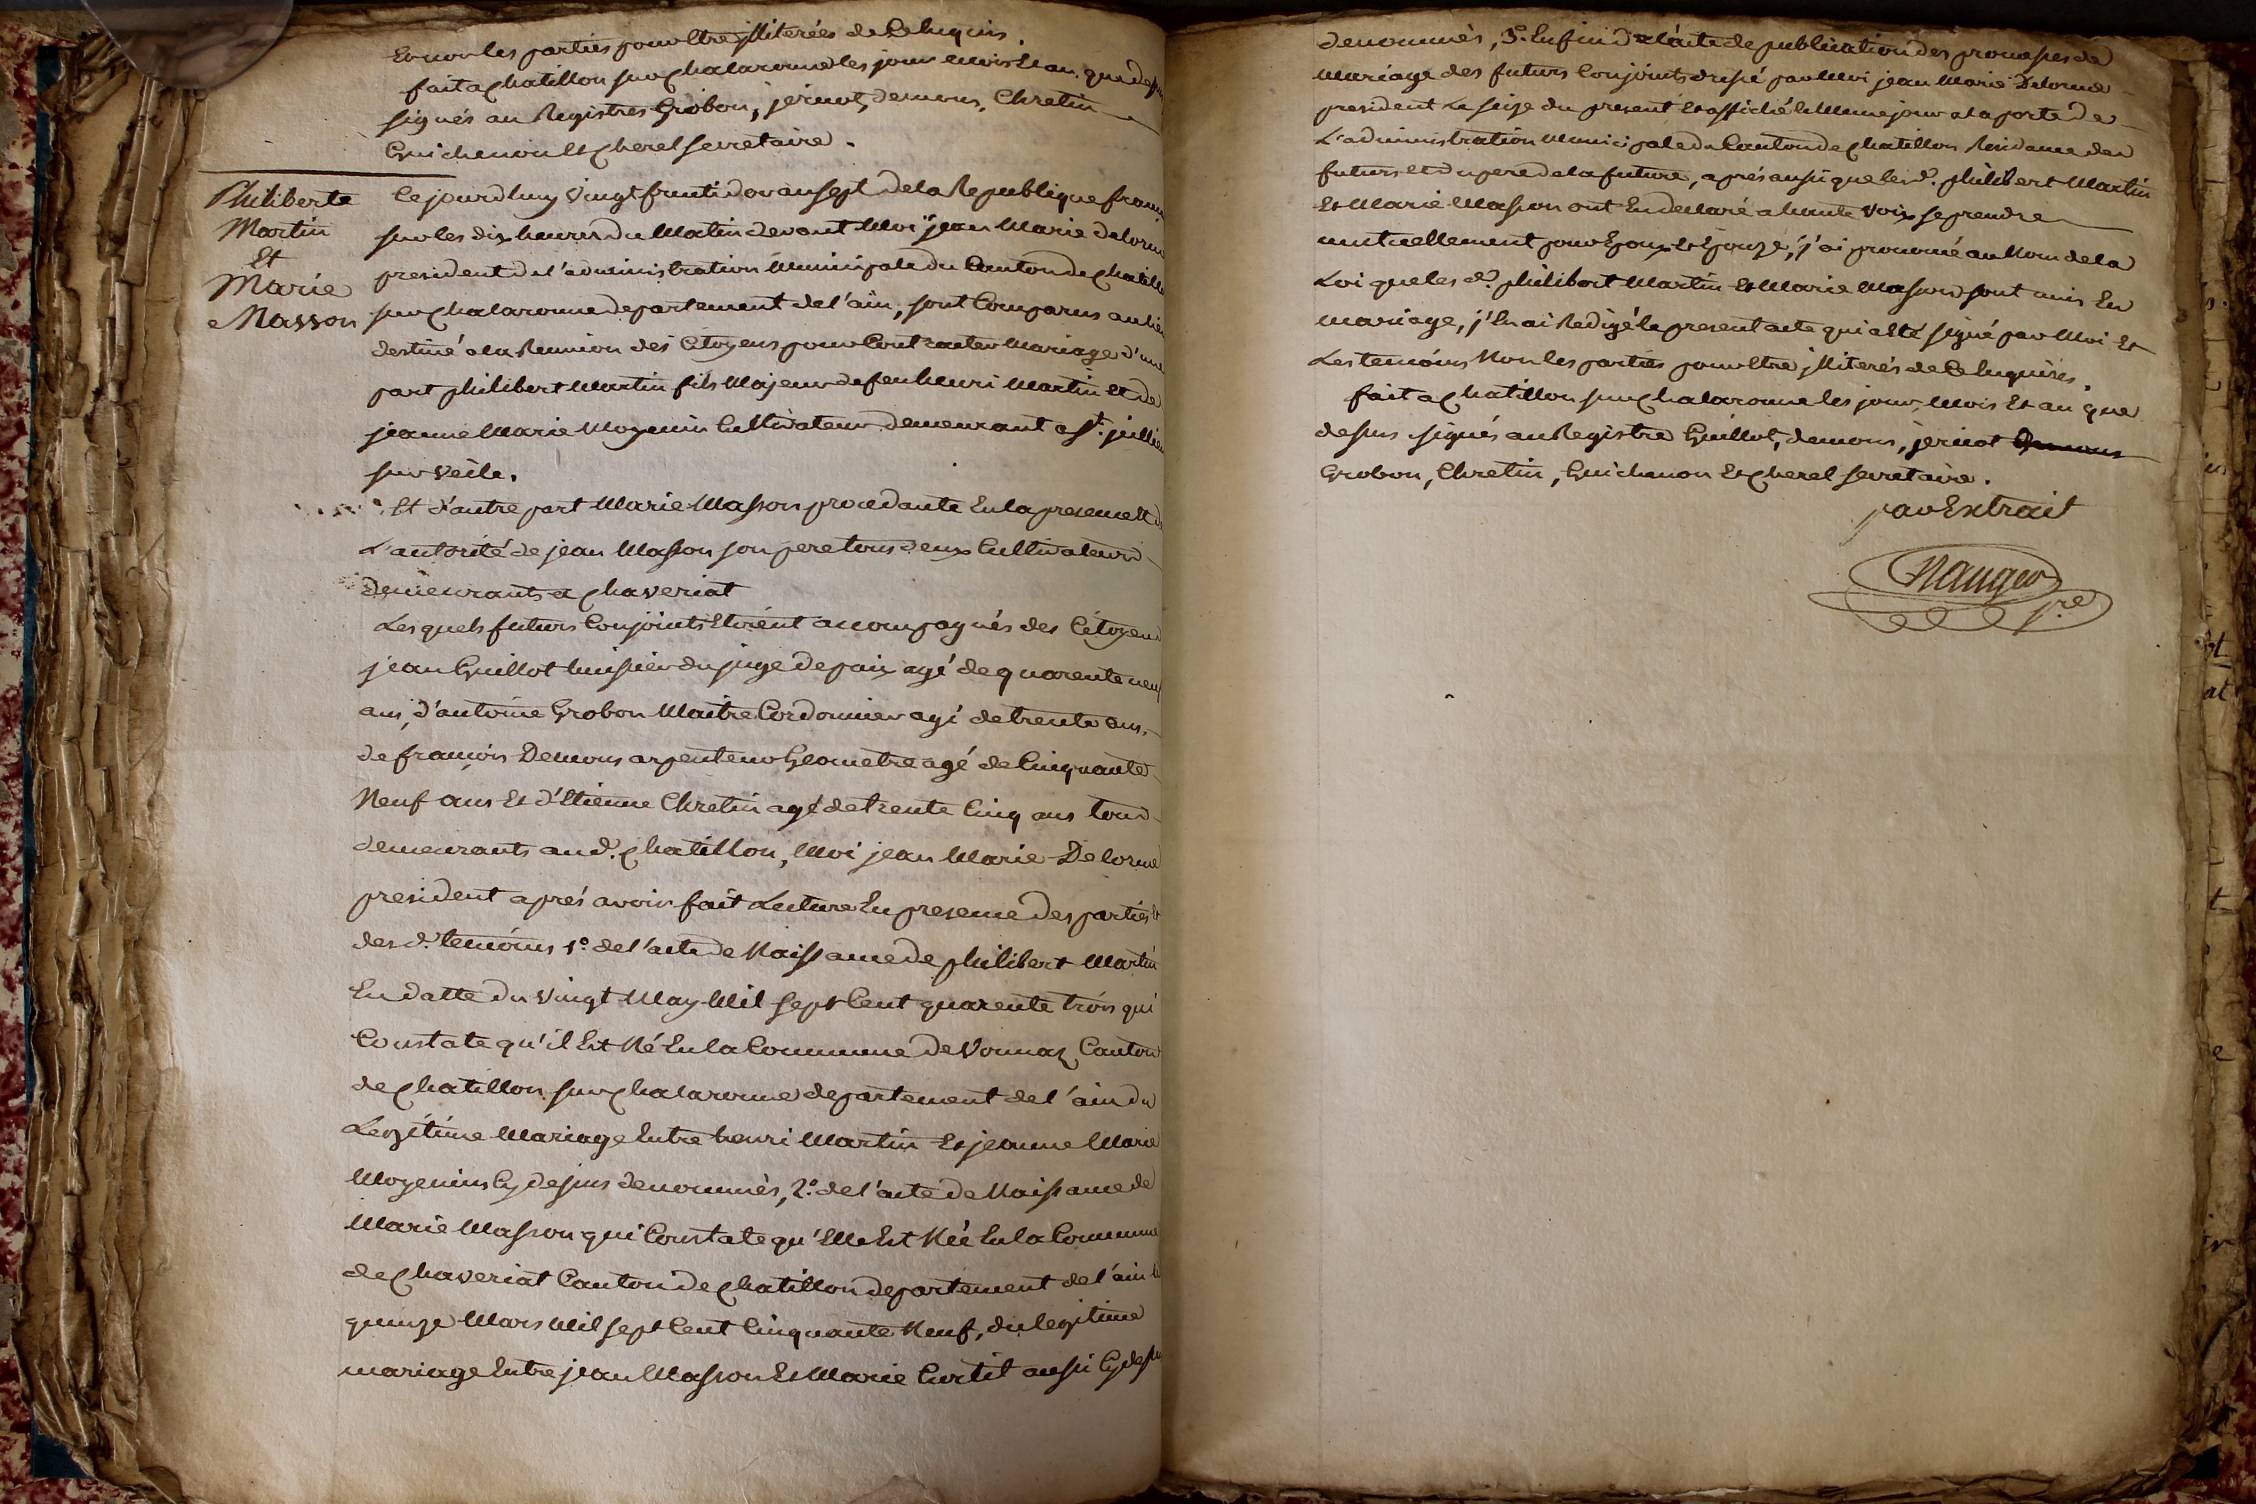 Et non les parties pour Etre jlliterées de Ce Enquis.
fait a chatillon sur chalaronne les jour mois Et an que dessus
signés au Registres Grobon, jeriot, demons, Chretin
Guichenon Et cherel secretaire.
Philiberte
Martin
Et
Marie
Masson
Ce jourdhuy vingt fructidor an sept de la Republique francaise
sur les dix heures du Matin devant Moi jean Marie delorme
president de l'administration Municipale du Canton de chatillon
sur chalaronne departement de l'ain, sont Comparus au lieu
destiné a la Reunion des Citoyens pour Contracter Mariage d'une
part philibert Martin fils Majeur de feu henri Martin et de
jeanne Marie Moyenin Cultivateur demeurant a st. jullien
sur veile.
Et d'autre part Marie Masson procedante En la presence Et de
L'autorité de jean Masson son pere tous deux Cultivateurs
demeurants a chaveriat
Les quels futurs Conjoints Etoient accompagnés des Citoyens
jean Guillot huissier du juge de paix agé de quarente neuf
ans, d'antoine Grobon Maitre Cordonnier agé de trente ans,
de francois Demons arpenteur Géometre agé de Cinquante
Neuf ans Et d'Etienne Chretin agé de trente Cinq ans tous
demeurants au d. chatillon, Moi jean Marie Delorme
president aprés avoir fait Lecture En presence des parties Et
des d. temoins 1.o de l'acte de Naissance de philibert Martin
En datte du vingt May Mil sept Cent quarente trois qui
Constate qu'il Est Né En la Commune de Vonnaz Canton
de chatillon sur chalaronne departement de l'ain du
Legitime Mariage Entre henri Martin Et jeanne Marie
Moyenins Cy dessus denommés, 2.o de l'acte de Naissance de
Marie Masson qui Constate qu'Elle Est Née En la Commune
de chaveriat Canton de chatillon departement de l'ain le
quinze Mars Mil sept Cent Cinquante Neuf, du legitime
mariage Entre jean Masson Et Marie Curtil aussi Cy dessus
denommés, 3.o Enfin de l'acte de publication des promesses de
Mariage des futurs Conjoints dressé par Moi jean Marie Delorme
president Le seize du present Et affiché le Meme jour a la porte de
L'administration Municipale du Canton de chatillon Residance des
futurs et du pere de la future, aprés aussi que les d. philibert Martin
Et Marie Masson ont En declaré a haute voix se prendre
mutuellement pour Epoux Et Epouze, j'ai prononcé au Nom de la
Loi que les d. philibert Martin Et Marie Masson sont unis En
mariage, j'En ai Redigé le present acte qui a Eté signé par Moi Et
Les temoins Non les parties pour Etre jlliterés de Ce Enquises.
fait a chatillon sur chalaronne les jour, Mois Et an que
dessus signés au Registre Guillot, demons, jeriot
Grobon, Chretin, Guichenon Et cherel secretaire.
par Extrait